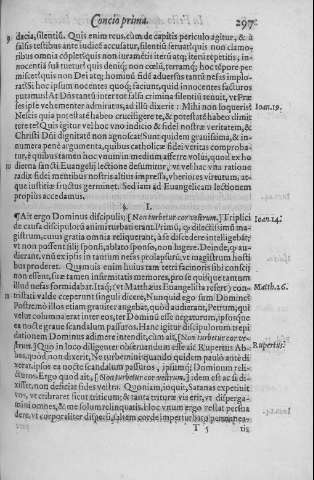 Concio prima.
297.
dacia, silentiũ. Quis enim reus, cùm de capitis periculo agitur, & à
falsis testibus ante iudicē accusatur, silentiũ seruat: quis non clamo-
ribus omnia cõplet: quis non iuramēti iteratis, 
nocentiã suã tuetur: quis deniq; non cœlũ, terramq; hoc tēpore per
miscet: quis non Dei atq; hominũ fidē aduersus tantã nefas implo-
rat? Si hoc ipsum nocentes quoq; faciunt, quid innocentes facturos
putamus? At Dñs tamē inter tot falsa crimina silentiũ tenuit, vt Præ
ses ipse vehementer admiratus, ad illũ dixerit: Mihi non loqueris?
Ioan.19.
Nescis quia potestatē habeo crucifigere te, & potestatē habeo dimit
tere te? Quis igitur vel hoc vno indicio & fidei nostræ veritatem, &
Christi Dñi dignitatē non agnoscat? Sunt quidem grauissima, & in-
numera penè argumenta, quibus catholicæ fidei veritas comproba-
tur, è quibus tamen hoc vnum in medium afferre volui, quod ex ho
dierna sancti Euangelij lectione desumitur, vt vel hac vna ratione
radix fidei mentibus nostris altius impressa, vberiores virtutum, at-
que iustitiæ fructus germinet. Sed iam ad Euangelicam lectionem
propius accedamus.
§. I.
¶Ait ergo Dominus discipulis: [Non turbetur cor vestrum.] Triplici
Ioan.14.
de causa discipulorũ animi turbari erant. Primò, quia dilectissimũ ma-
gistrum, cuius gratia omnia reliquerant, à se discedere intelligebãt:
vt non possent filij sponsi, ablato sponso, non lugere. Deinde, quia au-
dierant, vnũ ex ipsis in tantũ nefas prolapsurũ, vt magistrum hosti
bus proderet. Quamuis enim huius tam tetri facinoris sibi conscij
non essent, suæ tamen infirmitatis memores, pro se quisque tantum
illud nefas formidabat. Itaq; (vt Matthæus Euangelista refert) con-
Matth.26.
tristati valde cœperunt singuli dicere, Nunquid ego sum Domine?
Postremò illos etiam grauiter angebat, quòd audierant, Petrum, qui
velut columna erat inter eos, ter Dominũ esse negaturum, ipsosque
ea nocte graue scandalum passuros. Hanc igitur discipulorum trepi
dationem Dominus adimere intendit, cùm ait, [Non turbetur cor ve-
strum.] Quo in loco diligenter obseruandum esse ait Rupertus Ab-
Rupertus
bas, quod non dixerit, Ne turbemini: quando quidem paulò antè di
xerat, ipsos ea nocte scandalum passuros, ipsumq; Dominum reli-
cturos. Ergo quod ait, [Non turbetur cor vestrum.] idem est ac si di-
xisset, non deficiat fides vestra. Quoniam, inquit, Satanas expetiuit
vos, vt cribraret sicut triticum; & tanta trituræ vis erit, vt disperga-
mini omnes, & me solum relinquatis. Hoc vnum ergo restat persua
dere, vt corporaliter dispersi, saltem corde imperturbato permanea-
T 5
tis